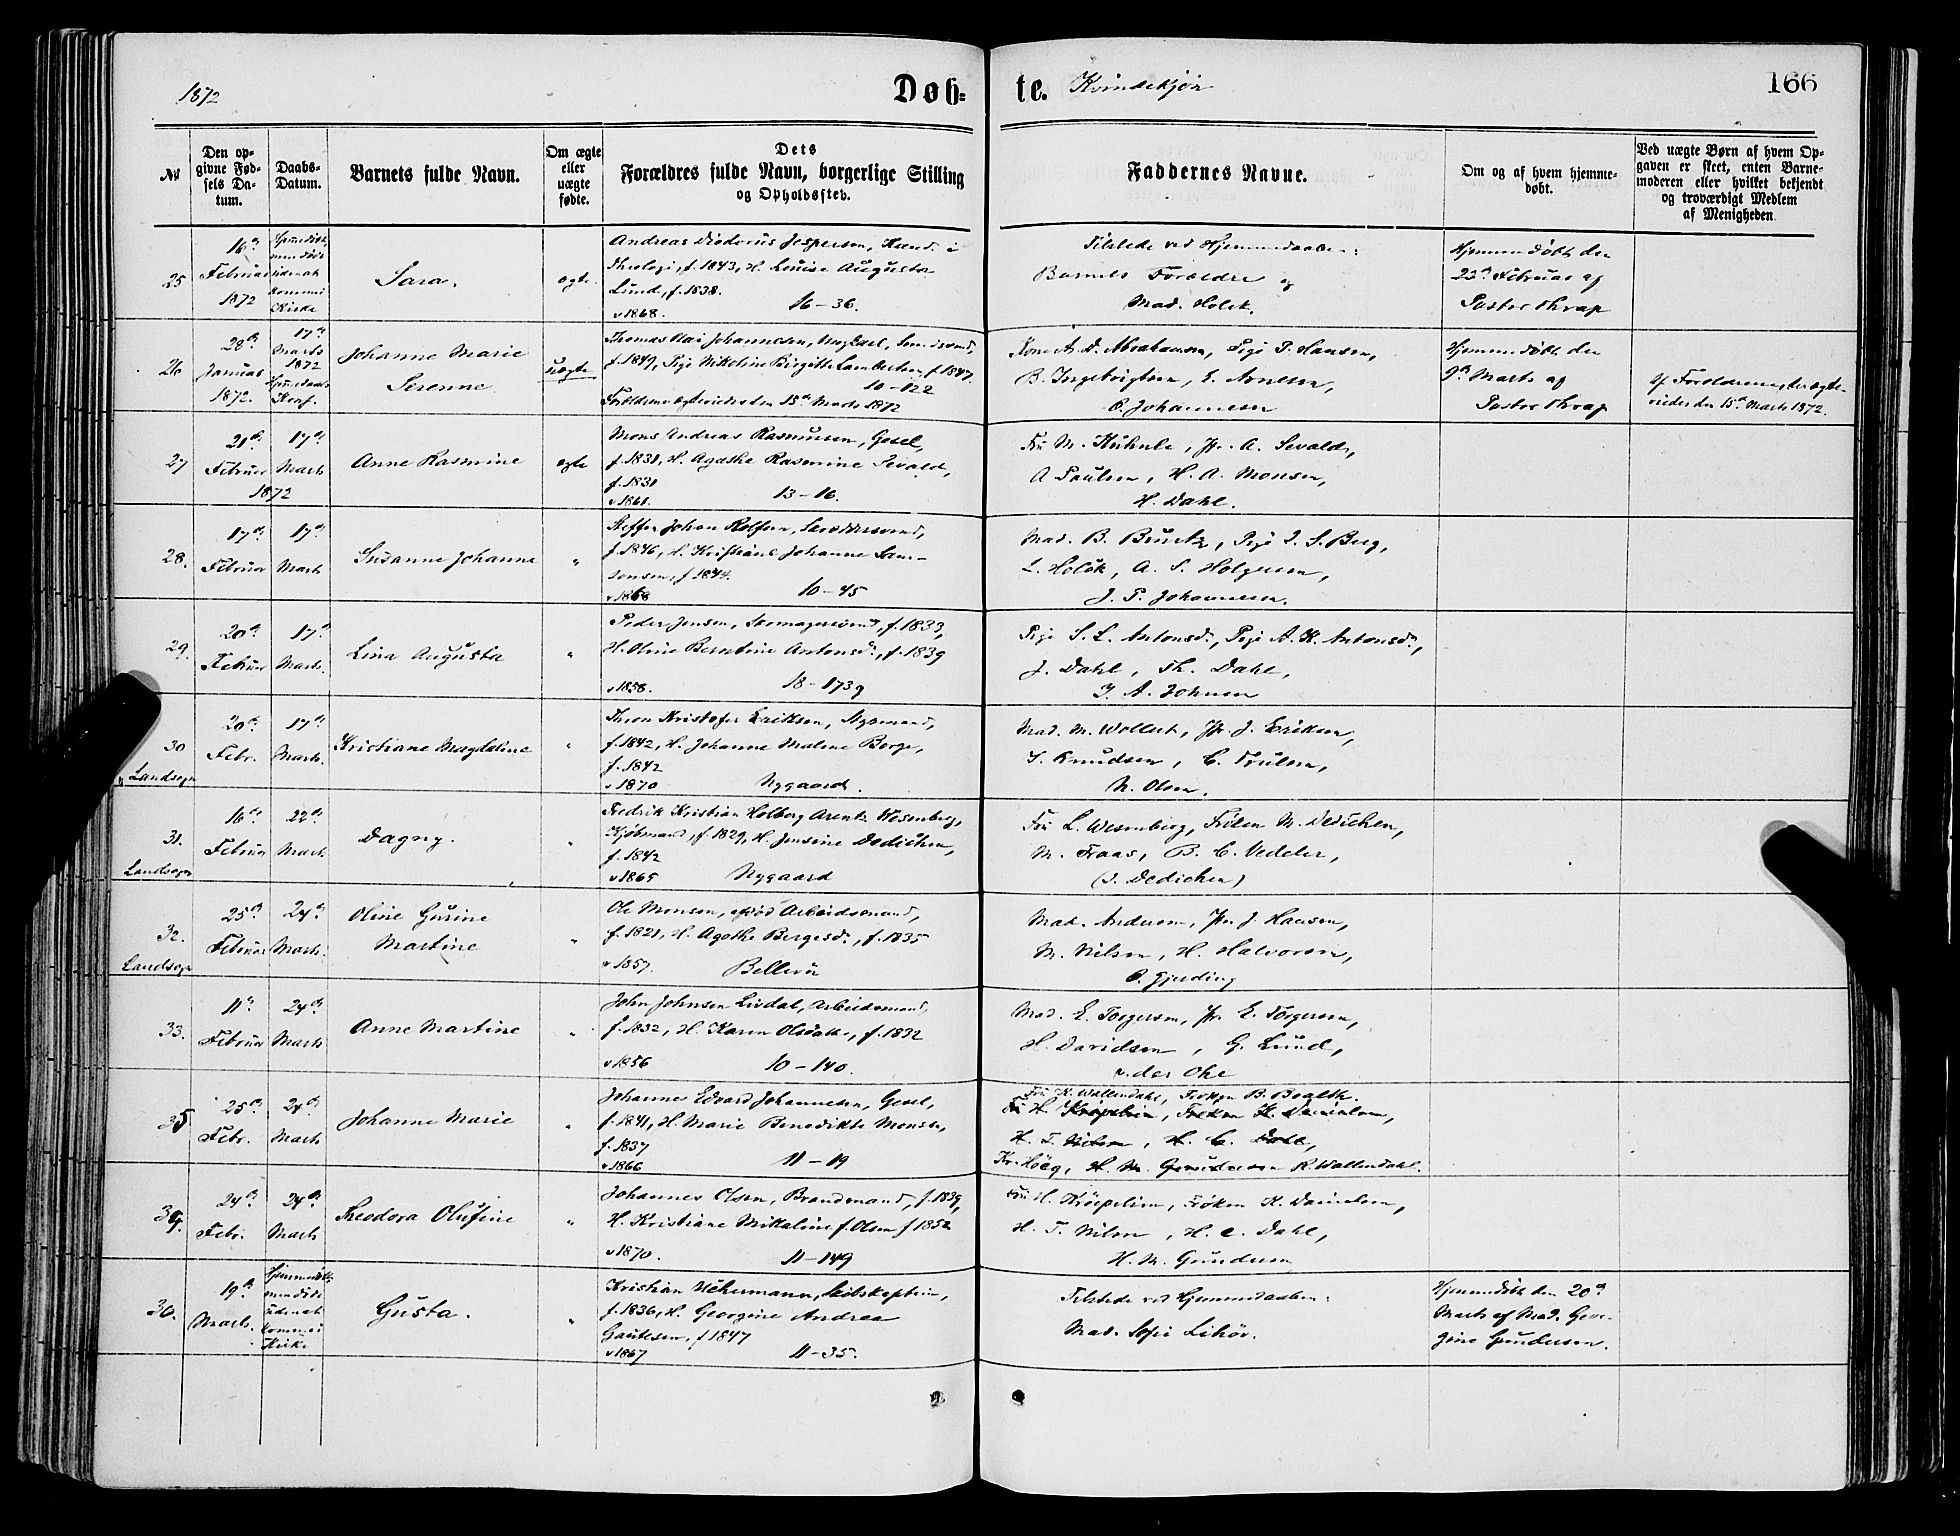 1872
Døb=
te.
Kvindekjøn
166
No
Den op-
givne Fød-
sels Da-
tum.
Daabs-
Datum.
Barnets fulde Navn.
Om ægte
eller
uægte
fødte.
Dets
Forældres fulde Navn, borgerlige Stilling
og Opholdssted.
Faddernes Navne.
Om og af hvem hjemme-
døbt.
Ved uægte Børn af hvem Op-
gaven er skeet, enten Barne-
moderen eller hvilket bekjendt
og troværdigt Medlem
af Menigheden.
25
16de
Februar
1872
Hjemdøbt,
men døde
uden at
komme i
Kirke
Sara.
ægte.
Andreas Diodorus Jespersen, Kand. i
Theologi, f. 1843, H. Louise Augusta
Lund, f. 1838.
v 1868. 16-36.
Tilstede ved Hjemmedaaben:
Barnets Forældre og
Mad. Holck.
Hjemmedøbt den
23de Februar af
Pastor Thrap
26
28de
Januar
1872.
17de
Marts
1872
Johanne Marie
Serenne
uægte
Thomas Olai Johannesen, Ungkarl,
f. 1849, Pige Nikoline Birgitte Lambertsen, f 1847.
10-122
Forældrene ægteviede den 15de Marts 1872
Kone A. D. Abrahamsen, Pige P. Hansen,
B. Ingebrigtsen, E. Arnesen,
O. Johannesen
Hjemmedøbt den
9de Marts af
Pastor Thrap
Forældrene ere ægte-
viede den 15de Marts 1872.
27
21de
Februar
1872
17de
Marts
Anne Rasmine
ægte
Mons Andreas Rasmussen, Gesel,
f. 1831, H. Agathe Rasmine Sevald,
f. 1831
v 1861. 13-16.
Fru M. Kühnle, Jfr. A. Sevald,
A Paulsen, H. A. Monsen,
H. Dahl.
28.
17de
Februar
17de
Marts
Susanne Johanne
"
Steffen Johan Rolfsen, Skræddersvend,
f. 1846, H. Kristiane Johanne Sam-
sonsen, f 1844.
v 1868 10-45
Mad. B. Bruntz, Pige I. S. Berg,
L. Holck, A. S. Holgersen,
J. P. Johannesen.
29.
20de
Februar
17de
Marts.
Lina Augusta
"
Peder Jensen, Skomagersvend, f. 1833,
H. Oline Berntine Antonsd., f. 1839
v 1858. 18-173g
Pige S. L. Antonsd., Pige A. K. Antonsd.,
J. Dahl, Th. Dahl,
I. A. Johnsen
30
Landsogn
20de
Febr.
17de
Marts.
Kristiane Magdaline
"
Thron Kristofer Eriksen,
f. 1842, H. Johanne Malene Berge,
f. 1842
v 1870 Nygaard.
Mad. M. Wollert, Jfr. J. Eriksen,
S. Knudsen, C. Trulsen,
N. Olsen.
31.
Landsogn
16de
Februar
22de
Marts
Dagny.
"
Fredrik Kristian Holberg Arentz Wesenberg,
Kjøbmand, f. 1829, H. Jensine Dedichen,
f. 1842
v 1865 Nygaard
Fru L. Wesenberg, Frøken M. Dedichen,
M. Traas, B. C. Vedeler,
(J. Dedichen)
32.
Landsogn
25de
Februar
24de
Marts.
Oline Gurine
Martine
"
Ole Monsen, Arbeidsmand,
f. 1821, H. Agathe Bergesd., f. 1835
v 1857. Bellevu
Mad. Andersen, Jfr. J. Hansen,
M. Nilsen, H. Halvorsen,
O. Gjerding
33.
11te
Februar
24de
Marts
Anne Martine
"
John Johnsen Livdal, Arbeidsmand,
f. 1832, H. Karen Olsdatter, f. 1832
v 1856 10-140.
Mad. E. Torgersen, Jfr. E. Torgersen,
H. Davidsen, G. Lund,
v. der Ohe
35
25de
Febr.
24de
Marts
Johanne Marie
"
Johannes Edvard Johannesen, Gesel,
f. 1841, H. Marie Benedikte Monsen,
f. 1837
v 1866 11-19
Fru K. Wallendahl, Frøken B. Boalth.
Fru H. Krøpelien, Frøken K. Danielsen,
H. T. Nilsen, H. C. Dahl,
Kr. Høeg, H. M. Gundersen R. Wallendahl.
24de
Febr.
24de
Marts
Theodora Olufine
"
Johannes Olsen, Brandmand, f. 1839,
H. Kristiane Mikaline f. Olsen f 1852
v 1870. 11-149
Fru H. Krøpelien, Frøken K. Danielsen,
H. T. Nilsen, H. C. Dahl,
H. M. Gundersen
36.
19de
Marts.
Hjemmedøbt,
men døde
uden at
komme i
Kirke
Gusta.
"
Kristian Uchermann, Skibskaptein,
f. 1836, H. Georgine Andrea
Gautesen, f 1847
v 1867 11-35.
Tilstede ved Hjemmedaaben:
Mad. Sofie Lihør.
Hjemmedøbt den 20de
Marts af Mad. Geor-
gine Gundersen.